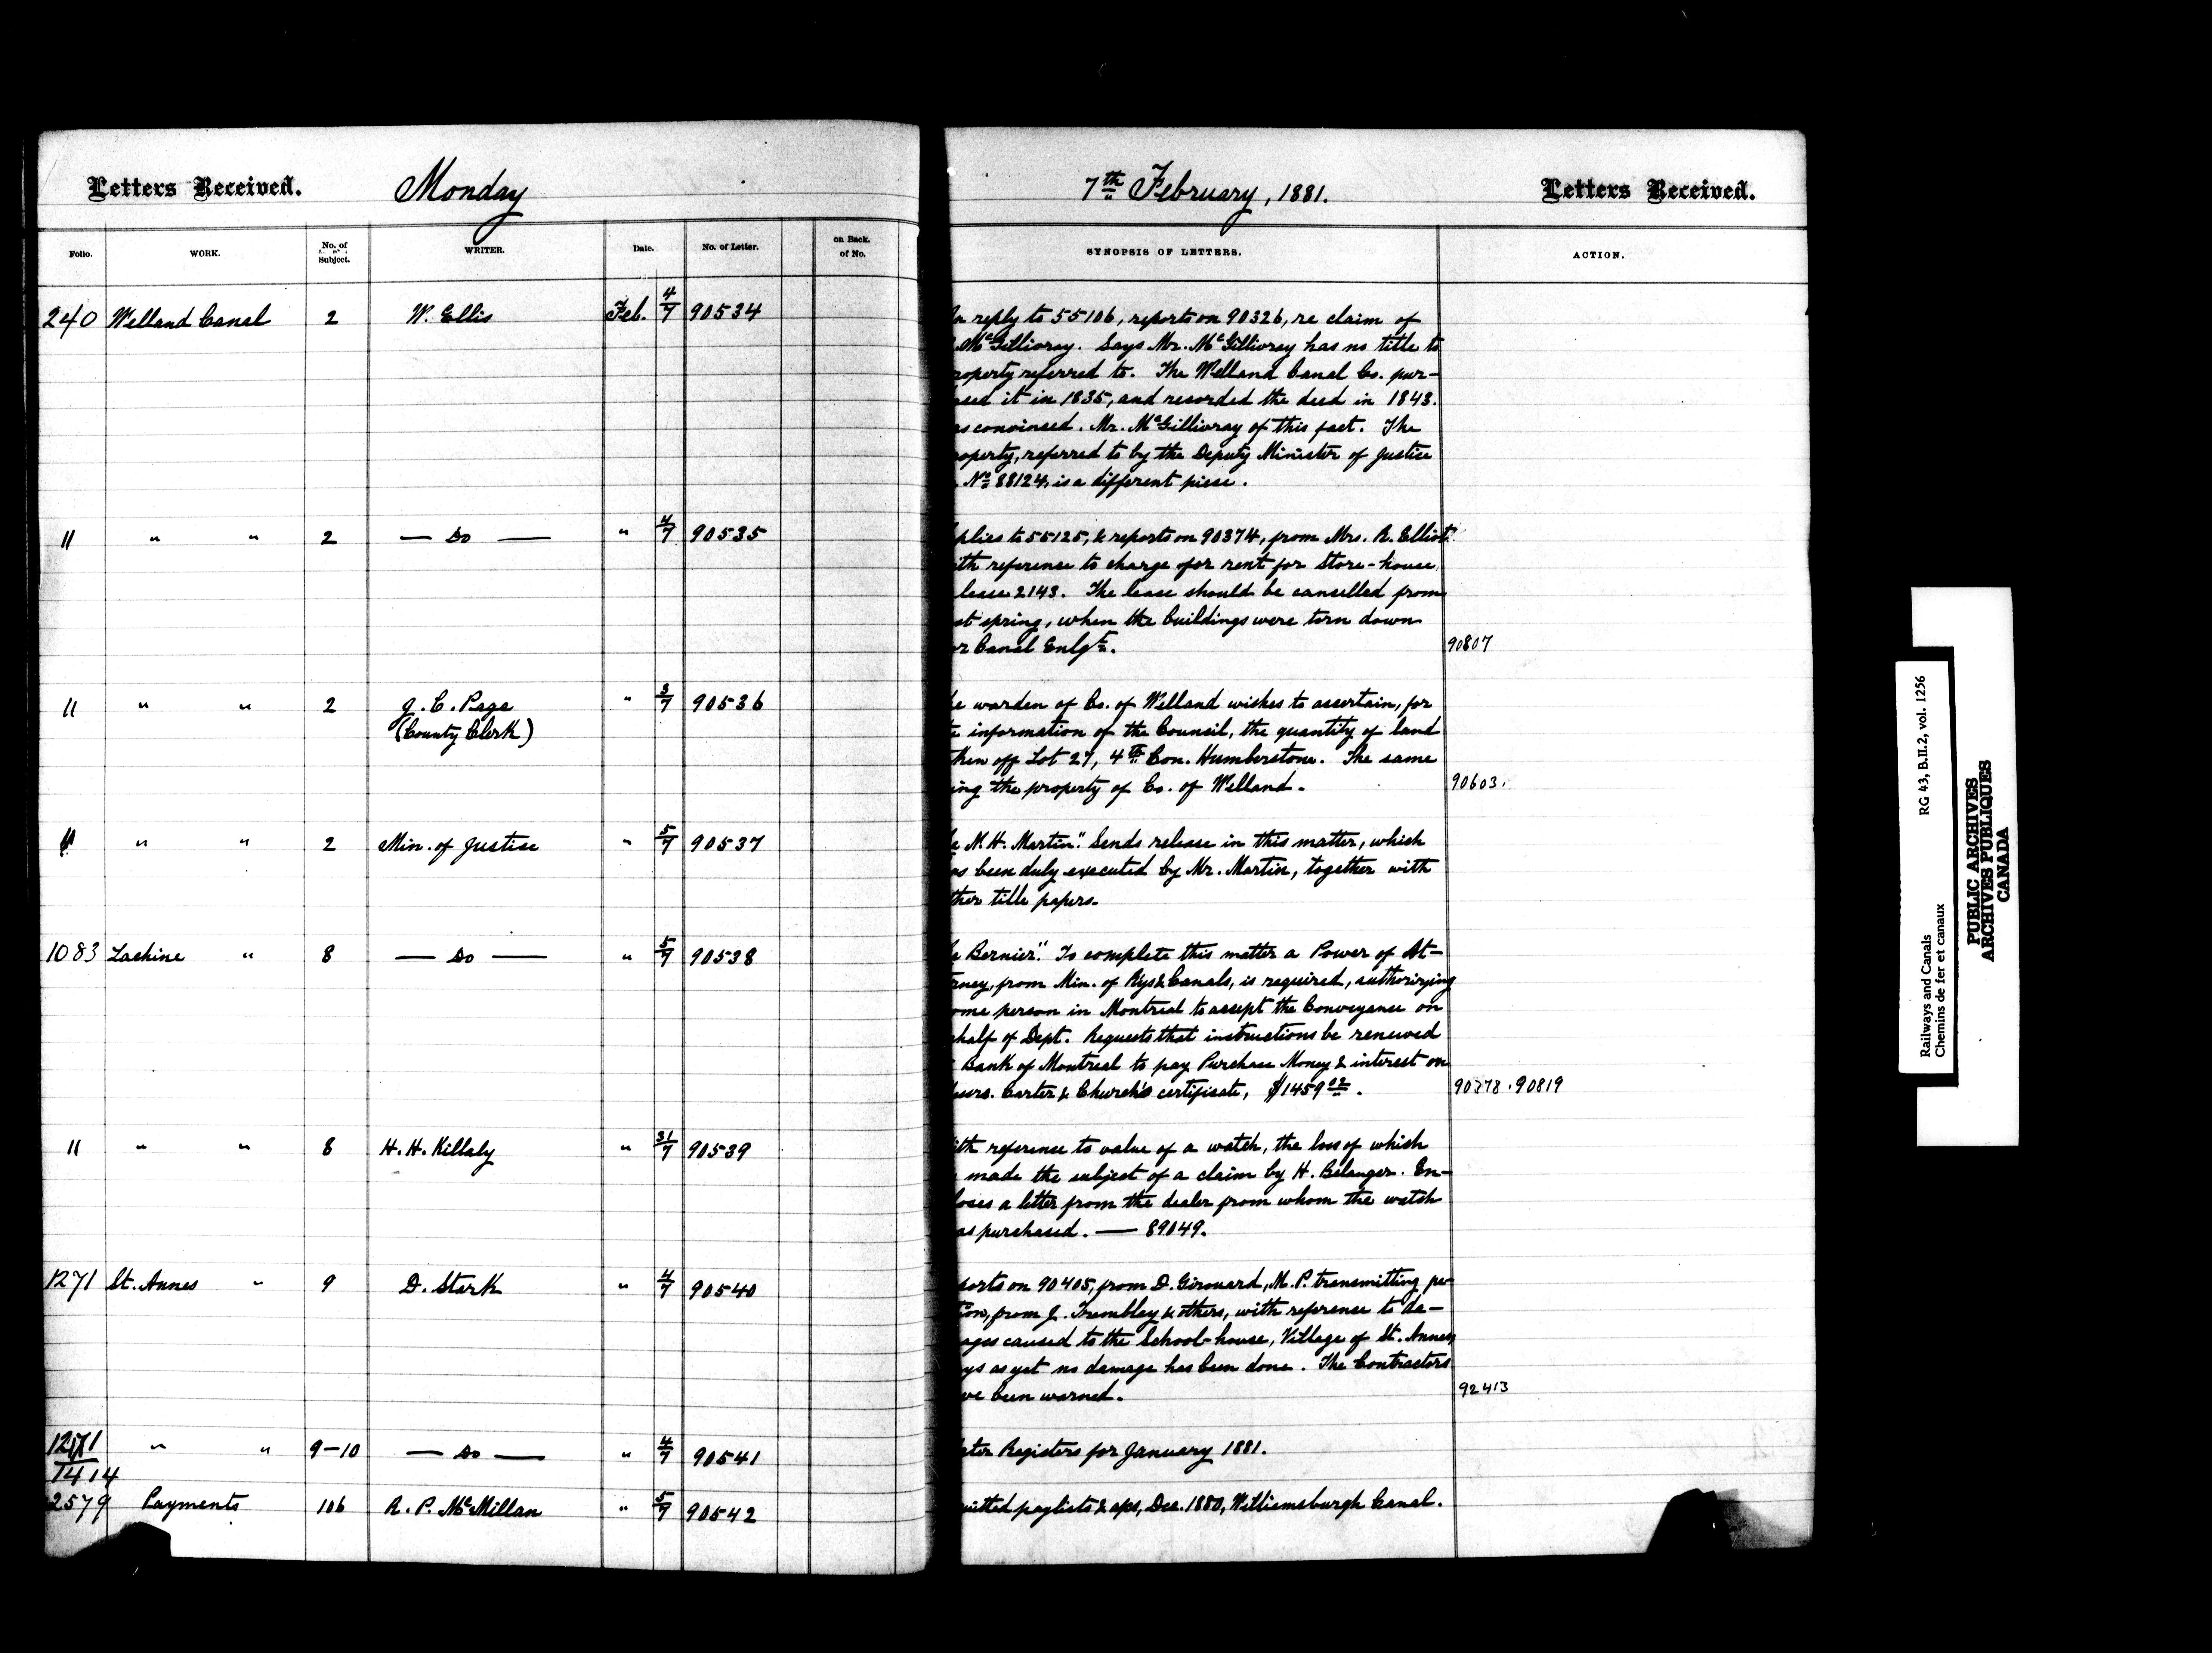 Letters Received. Monday
7th February, 1881. Letters Received.
Folio. WORK. No. of Subject. WRITER. Date. No. of Letter. on Back. of No.
SYNOPSIS OF LETTERS. ACTION.
240 Welland Canal 2 W. Ellis Feb. 4/7 90534
n reply to 55106, reports on 90326, re claim of
McGillivray. Says Mr. McGillivray has no title to
roperty referred to. The Welland Canal Co. pur-
ased it in 1835, and recorded the deed in 1843.
as convinced. Mr. McGillivray of this fact. The
roperty, referred to by the Deputy Minister of Justice
No 88124, is a different piece.
11 " " 2 — Do — " 4/7 90535
plies to 55125, & reports on 90374, from Mrs. R. Elliot
ith reference to charge for rent for Store-house
lease 2143. The lease should be cancelled from
st spring, when the buildings were torn down
or Canal Enlgt.
90807
11 " " 2 J. C. Page " 3/7 90536
(County Clerk)
e warden of Co. of Welland wishes to ascertain, for
e information of the Council, the quantity of land
ken off Lot 27, 4th Con. Humberstone. The same
ing the property of Co. of Welland.
90603.
" " 2 Min. of Justice " 5/7 90537
e M. H. Martin." Sends release in this matter, which
as been duly executed by Mr. Martin, together with
ther title papers.
1083 Lachine " 8 — Do — " 5/7 90538
e Bernier." To complete this matter a Power of At-
rney, from Min. of Rys & Canals, is required, authorizing
ome person in Montreal to accept the Conveyance on
ehalf of Dept. Requests that instructions be renewed
Bank of Montreal to pay Purchase Money & interest on
ssrs. Carter & Church's certificate, $1459
90878 . 90819
11 " " 8 H. H. Killaly " 31/7 90539
ith reference to value of a watch, the loss of which
made the subject of a claim by H. Belanger. En-
loses a letter from the dealer from whom the watch
as purchased. — 89049.
1271 St. Annes " 9 D. Stark " 4/7 90540
ports on 90405, from D. Girouard, M. P. transmitting pe-
tion, from J. Trembley & others, with reference to da-
ages caused to the School-house, Village of St. Annes
ys as yet no damage has been done. The Contractors
ve been warned.
92413
1271 " " 9-10 — Do — " 4/7 90541
1414
ater Registers for January 1881.
2579 Payments 106 R. P. McMillan " 5/7 90542
uitted paylists & Dec. 1880, Williamsburgh Canal.
Railways and Canals RG 43, B.II.2, vol. 1256
Chemins de fer et canaux
PUBLIC ARCHIVES
ARCHIVES PUBLIQUES
CANADA